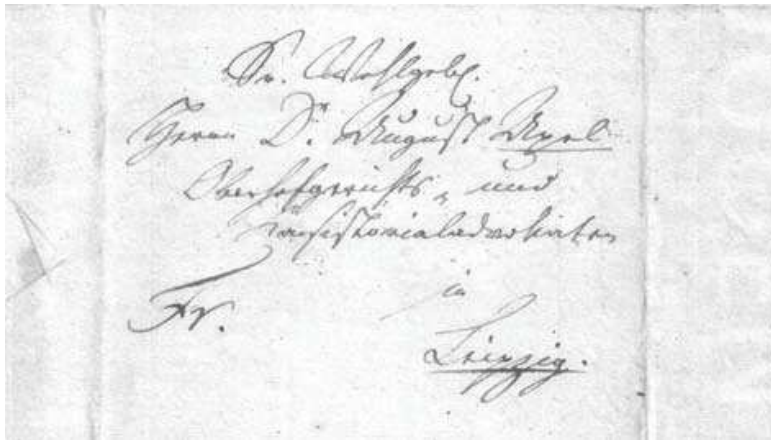 Sr. Wohlgeb.
Herrn D. August Apel
Oberhofgerichts- und
Consistorialadvokaten
in
Fr.
Leipzig.